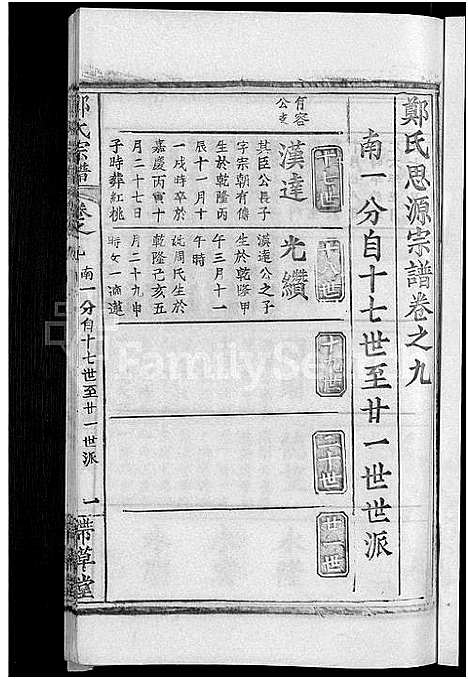 鄭氏思源宗譜卷之九
南一分自十七世至廿一世世派
十七世
十八世
十九世
二十世
廿一世
漢達
其臣公長子
字宗朝有傳
生於乾隆丙
辰十一月十
一戌時卒於
嘉慶丙寅十
月二十七日
子時葬紅桃
光纘
漢達公之子
生於乾隆甲
午三月十一
午時
娶周氏生於
乾隆己亥五
月二十九申
時女一適蓮
鄭氏宗譜
卷之九
南一分自十七世至廿一世派
一
帶草堂
FamilySearch